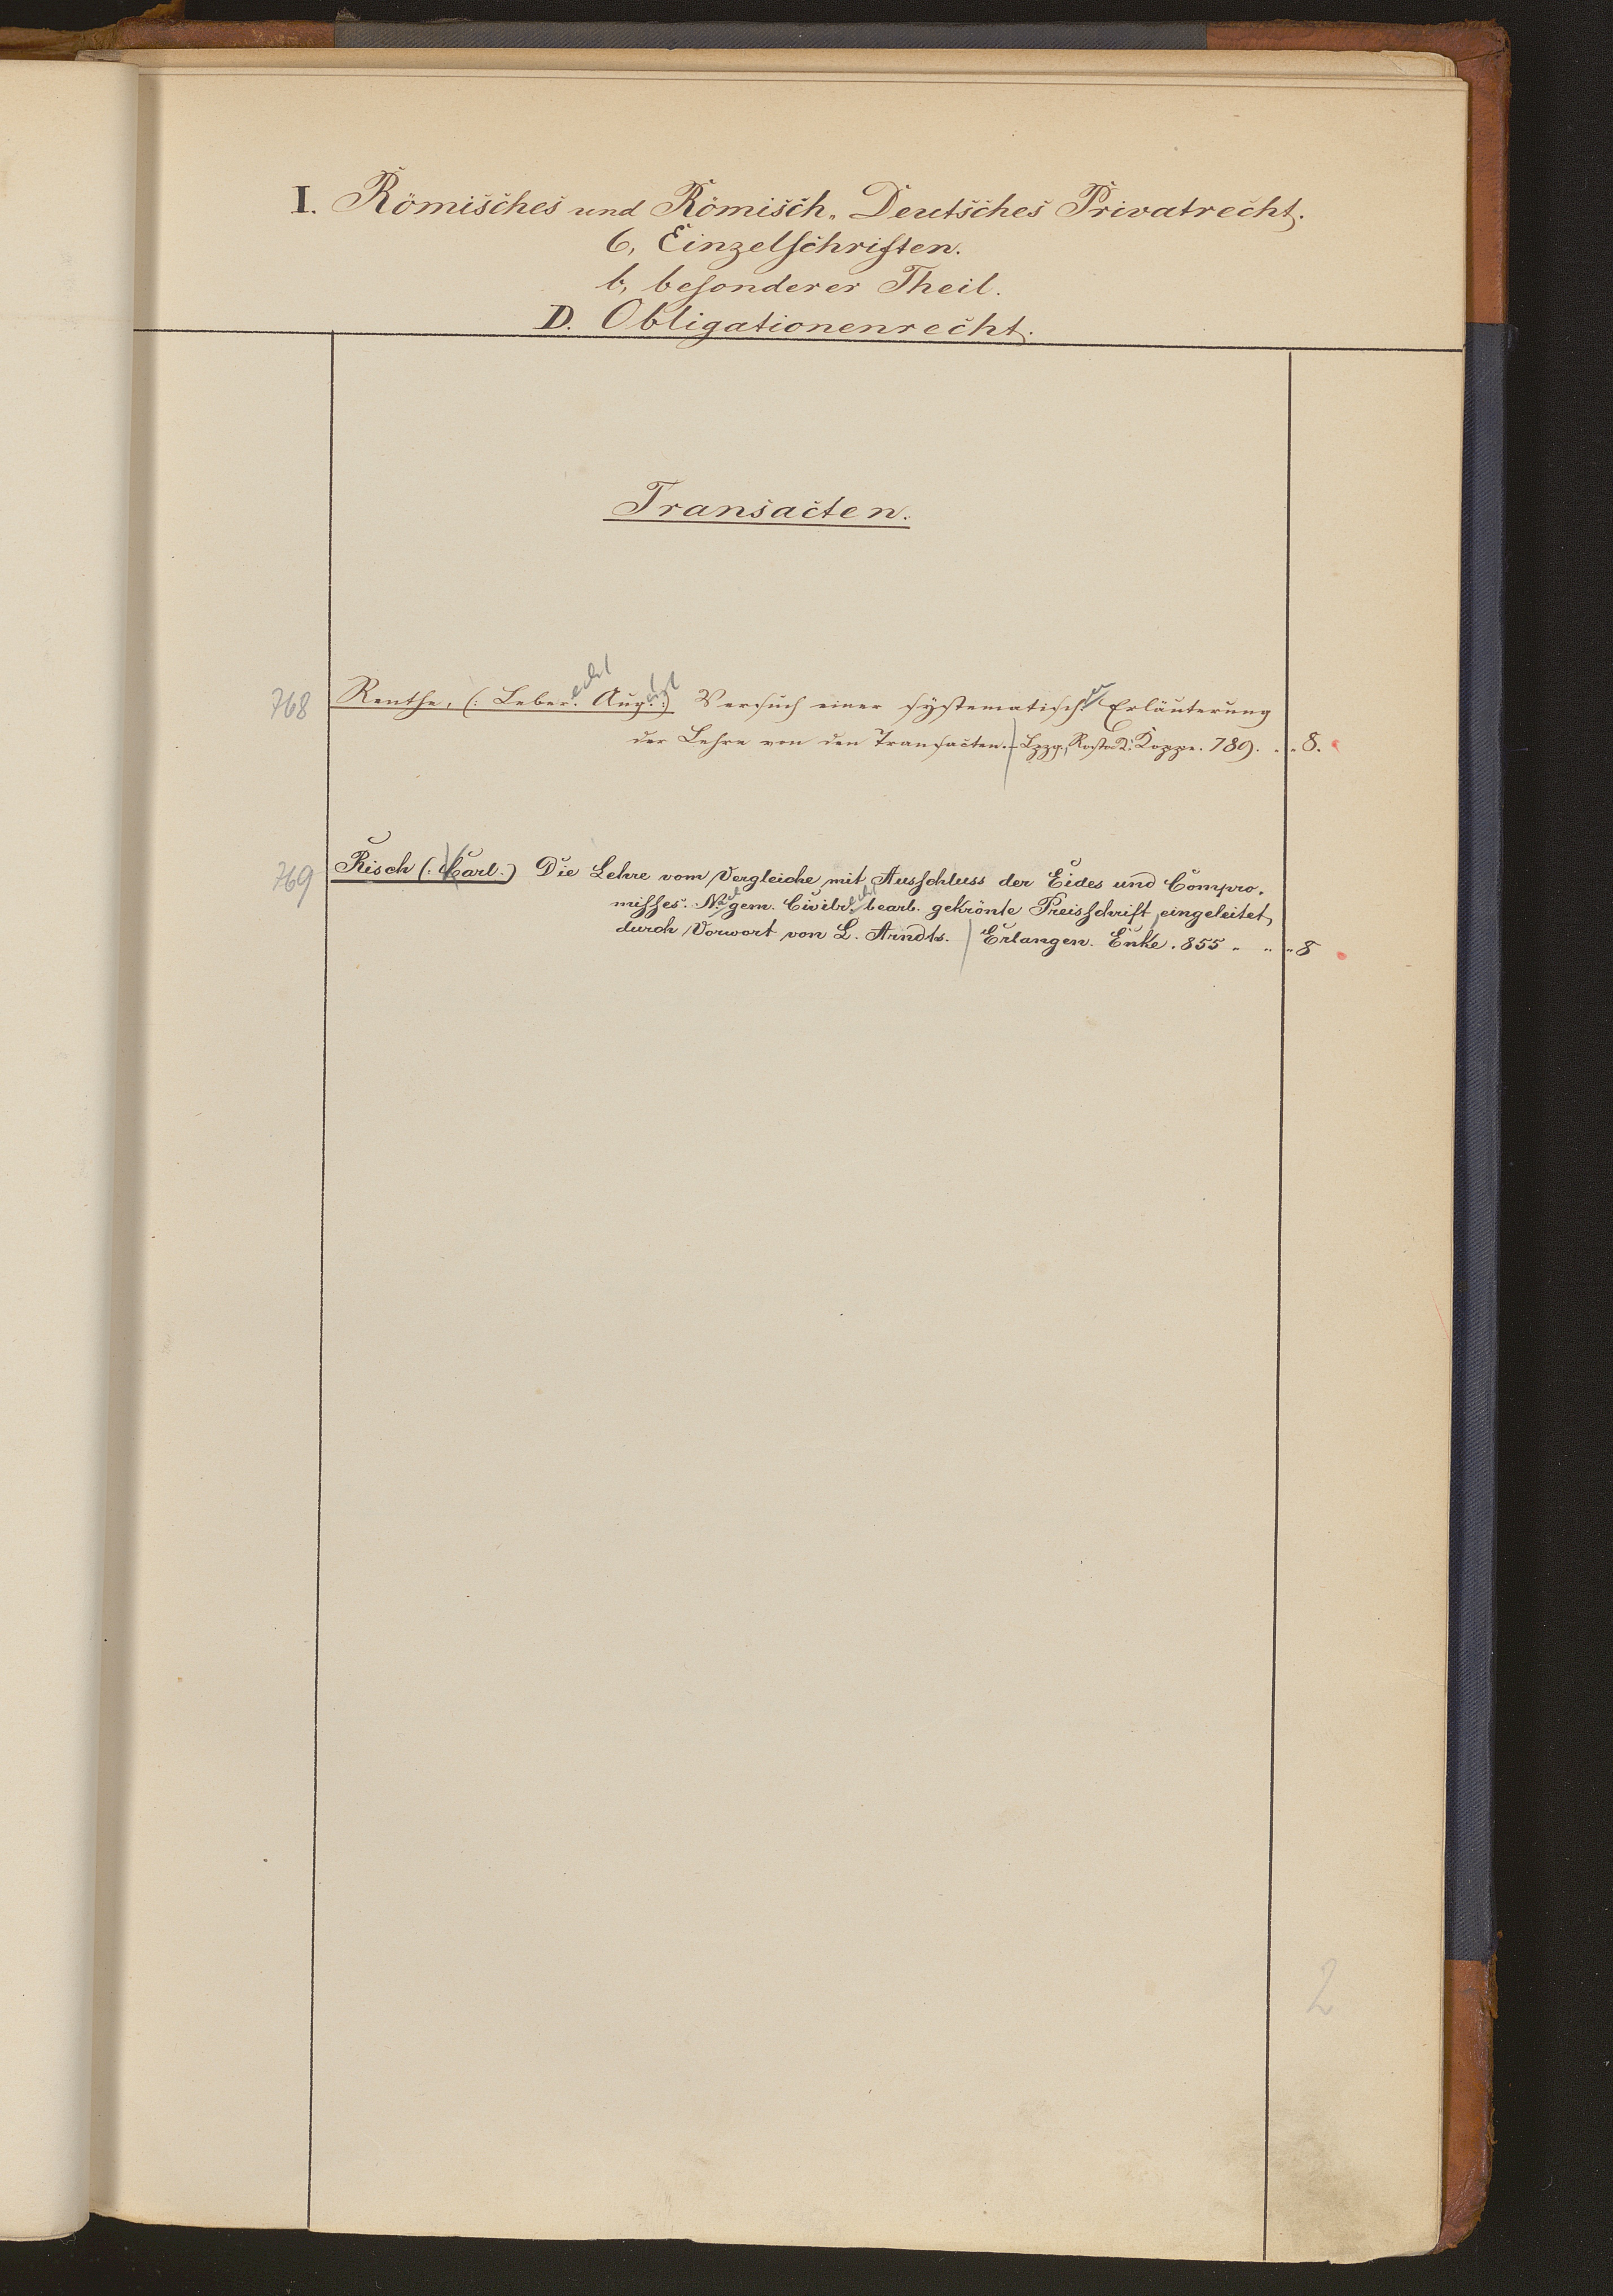 I. Römisches und Römisch-Deutsches Privatrecht.
6, Einzelschriften.
b, besonderer Theil.
D. Obligationenrecht.
Transacten.
768 Renthe, (: Leber.echt Aug.ust :) Versuch einer systematischen Erläuterung
der Lehre von den Transacten. - Lpzg., Rostock. Koppe. 789. . . 8.
769 Risch (: Carl.) Die Lehre vom Vergleiche mit Ausschluss der Eides und Compro-
misses. N.ach gem. Civilr.echt bearb. gekrönte Preisschrift, eingeleitet,
durch Vorwort von L. Arndts. Erlangen. Enke. 855 " " " 8
2